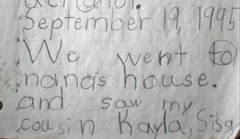 September 19, 1995
We went to
nana's house.
and saw my
cousin Kayla, Sissy